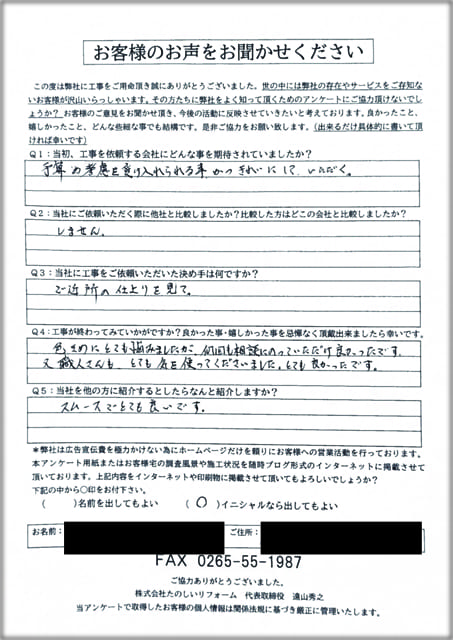 お客様のお声をお聞かせください
この度は弊社に工事をご用命頂き誠にありがとうございました。世の中には弊社の存在やサービスをご存知な
いお客様が沢山いらっしゃいます。その方たちに弊社をよく知って頂くためのアンケートにご協力頂けないでし
ょうか?お客様のご意見をお聞かせ頂き、今後の活動に反映させていきたいと考えております。良かったこと、
嬉しかったこと、どんな些細な事でも結構です。是非ご協力をお願い致します。(出来るだけ具体的に書いて頂
ければ幸いです)
Q1:当初、工事を依頼する会社にどんな事を期待されていましたか?
予算の考慮を受け入れられる事、かつきれいにして いただく。
Q2:当社にご依頼いただく際に他社と比較しましたか?比較した方はどこの会社と比較しましたか?
しません。
Q3:当社に工事をご依頼いただいた決め手は何ですか?
ご近所の仕上りを見て。
Q4:工事が終わってみていかがですか?良かった事・嬉しかった事を忌憚なく頂戴出来ましたら幸いです。
色ぎめにとても悩みましたが、何回も相談にのっていただけ良かったです。
又職人さんも、とても 使ってくださいました。とても良かったです。
Q5:当社を他の方に紹介するとしたらなんと紹介しますか?
スムーズでとても良いです。
*弊社は広告宣伝費を極力かけない為にホームページだけを頼りにお客様への営業活動を行っております。
本アンケート用紙またはお客様宅の調査風景や施工状況を随時ブログ形式のインターネットに掲載させて
頂いております。上記内容をインターネットや印刷物に掲載させて頂いてもよろしいでしょうか?
下記の中から○印をお付下さい。
(　　)名前を出してもよい　　(○)イニシャルなら出してもよい
お名前:　ご住所:
FAX 0265-55-1987
ご協力ありがとうございました。
株式会社たのしいリフォーム　代表取締役　遠山秀之
当アンケートで取得したお客様の個人情報は関係法規に基づき厳正に管理いたします。